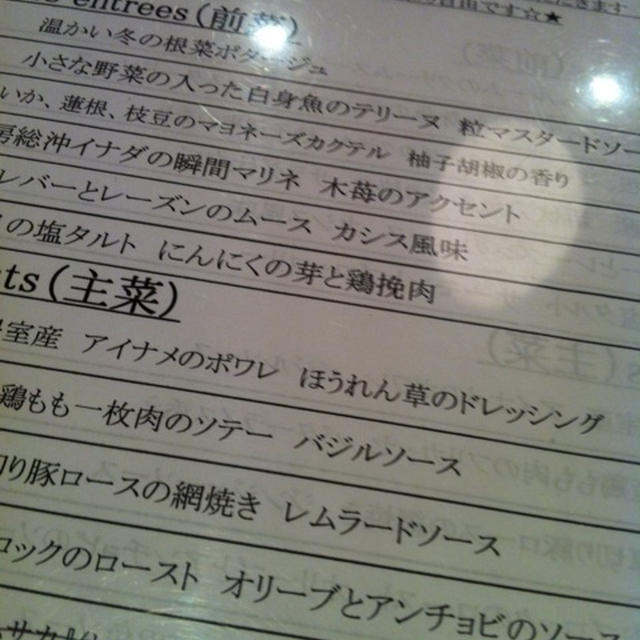 entrees（前菜）
温かい冬の根菜ポタージュ
小さな野菜の入った白身魚のテリーヌ 粒マスタードソー
いか、蓮根、枝豆のマヨネーズカクテル 柚子胡椒の香り
房総沖イナダの瞬間マリネ 木苺のアクセント
レバーとレーズンのムース カシス風味
の塩タルト にんにくの芽と鶏挽肉
ts（主菜）
室産 アイナメのポワレ ほうれん草のドレッシング
鶏もも一枚肉のソテー バジルソース
切り豚ロースの網焼き レムラードソース
ロックのロースト オリーブとアンチョビのソース